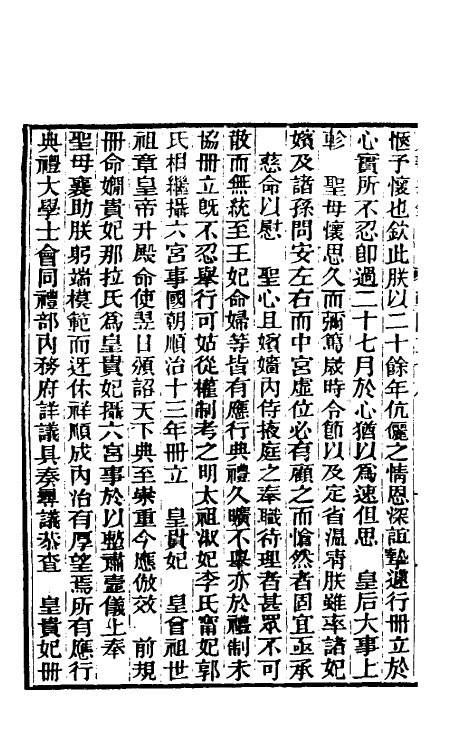 愜予懷也欽此朕以二十餘年伉儷之情恩深誼摯遽行冊立於
心實所不忍卽過二十七月於心猶以為速但思 皇后大事上
軫 聖母懷思久而彌篤歲時令節以及定省溫凊朕雖率諸妃
嬪及諸孫問安左右而中宮虛位必有顧之而愴然者固宜亟承
慈命以慰 聖心且嬪嬙內侍掖庭之奉職待理者甚眾不可
散而無統至王妃命婦等皆有應行典禮久曠不舉亦於禮制未
協冊立旣不忍舉行可姑從權制考之明太祖淑妃李氏甯妃郭
氏相繼攝六宮事國朝順治十三年冊立 皇貴妃 皇曾祖世
祖章皇帝升殿命使翌日頒詔天下典至崇重今應倣效 前規
冊命嫺貴妃那拉氏為皇貴妃攝六宮事於以整肅壼儀上奉
聖母襄助朕躬端模範而迓休祥順成內治有厚望焉所有應行
典禮大學士會同禮部內務府詳議具奏尋議恭查 皇貴妃冊